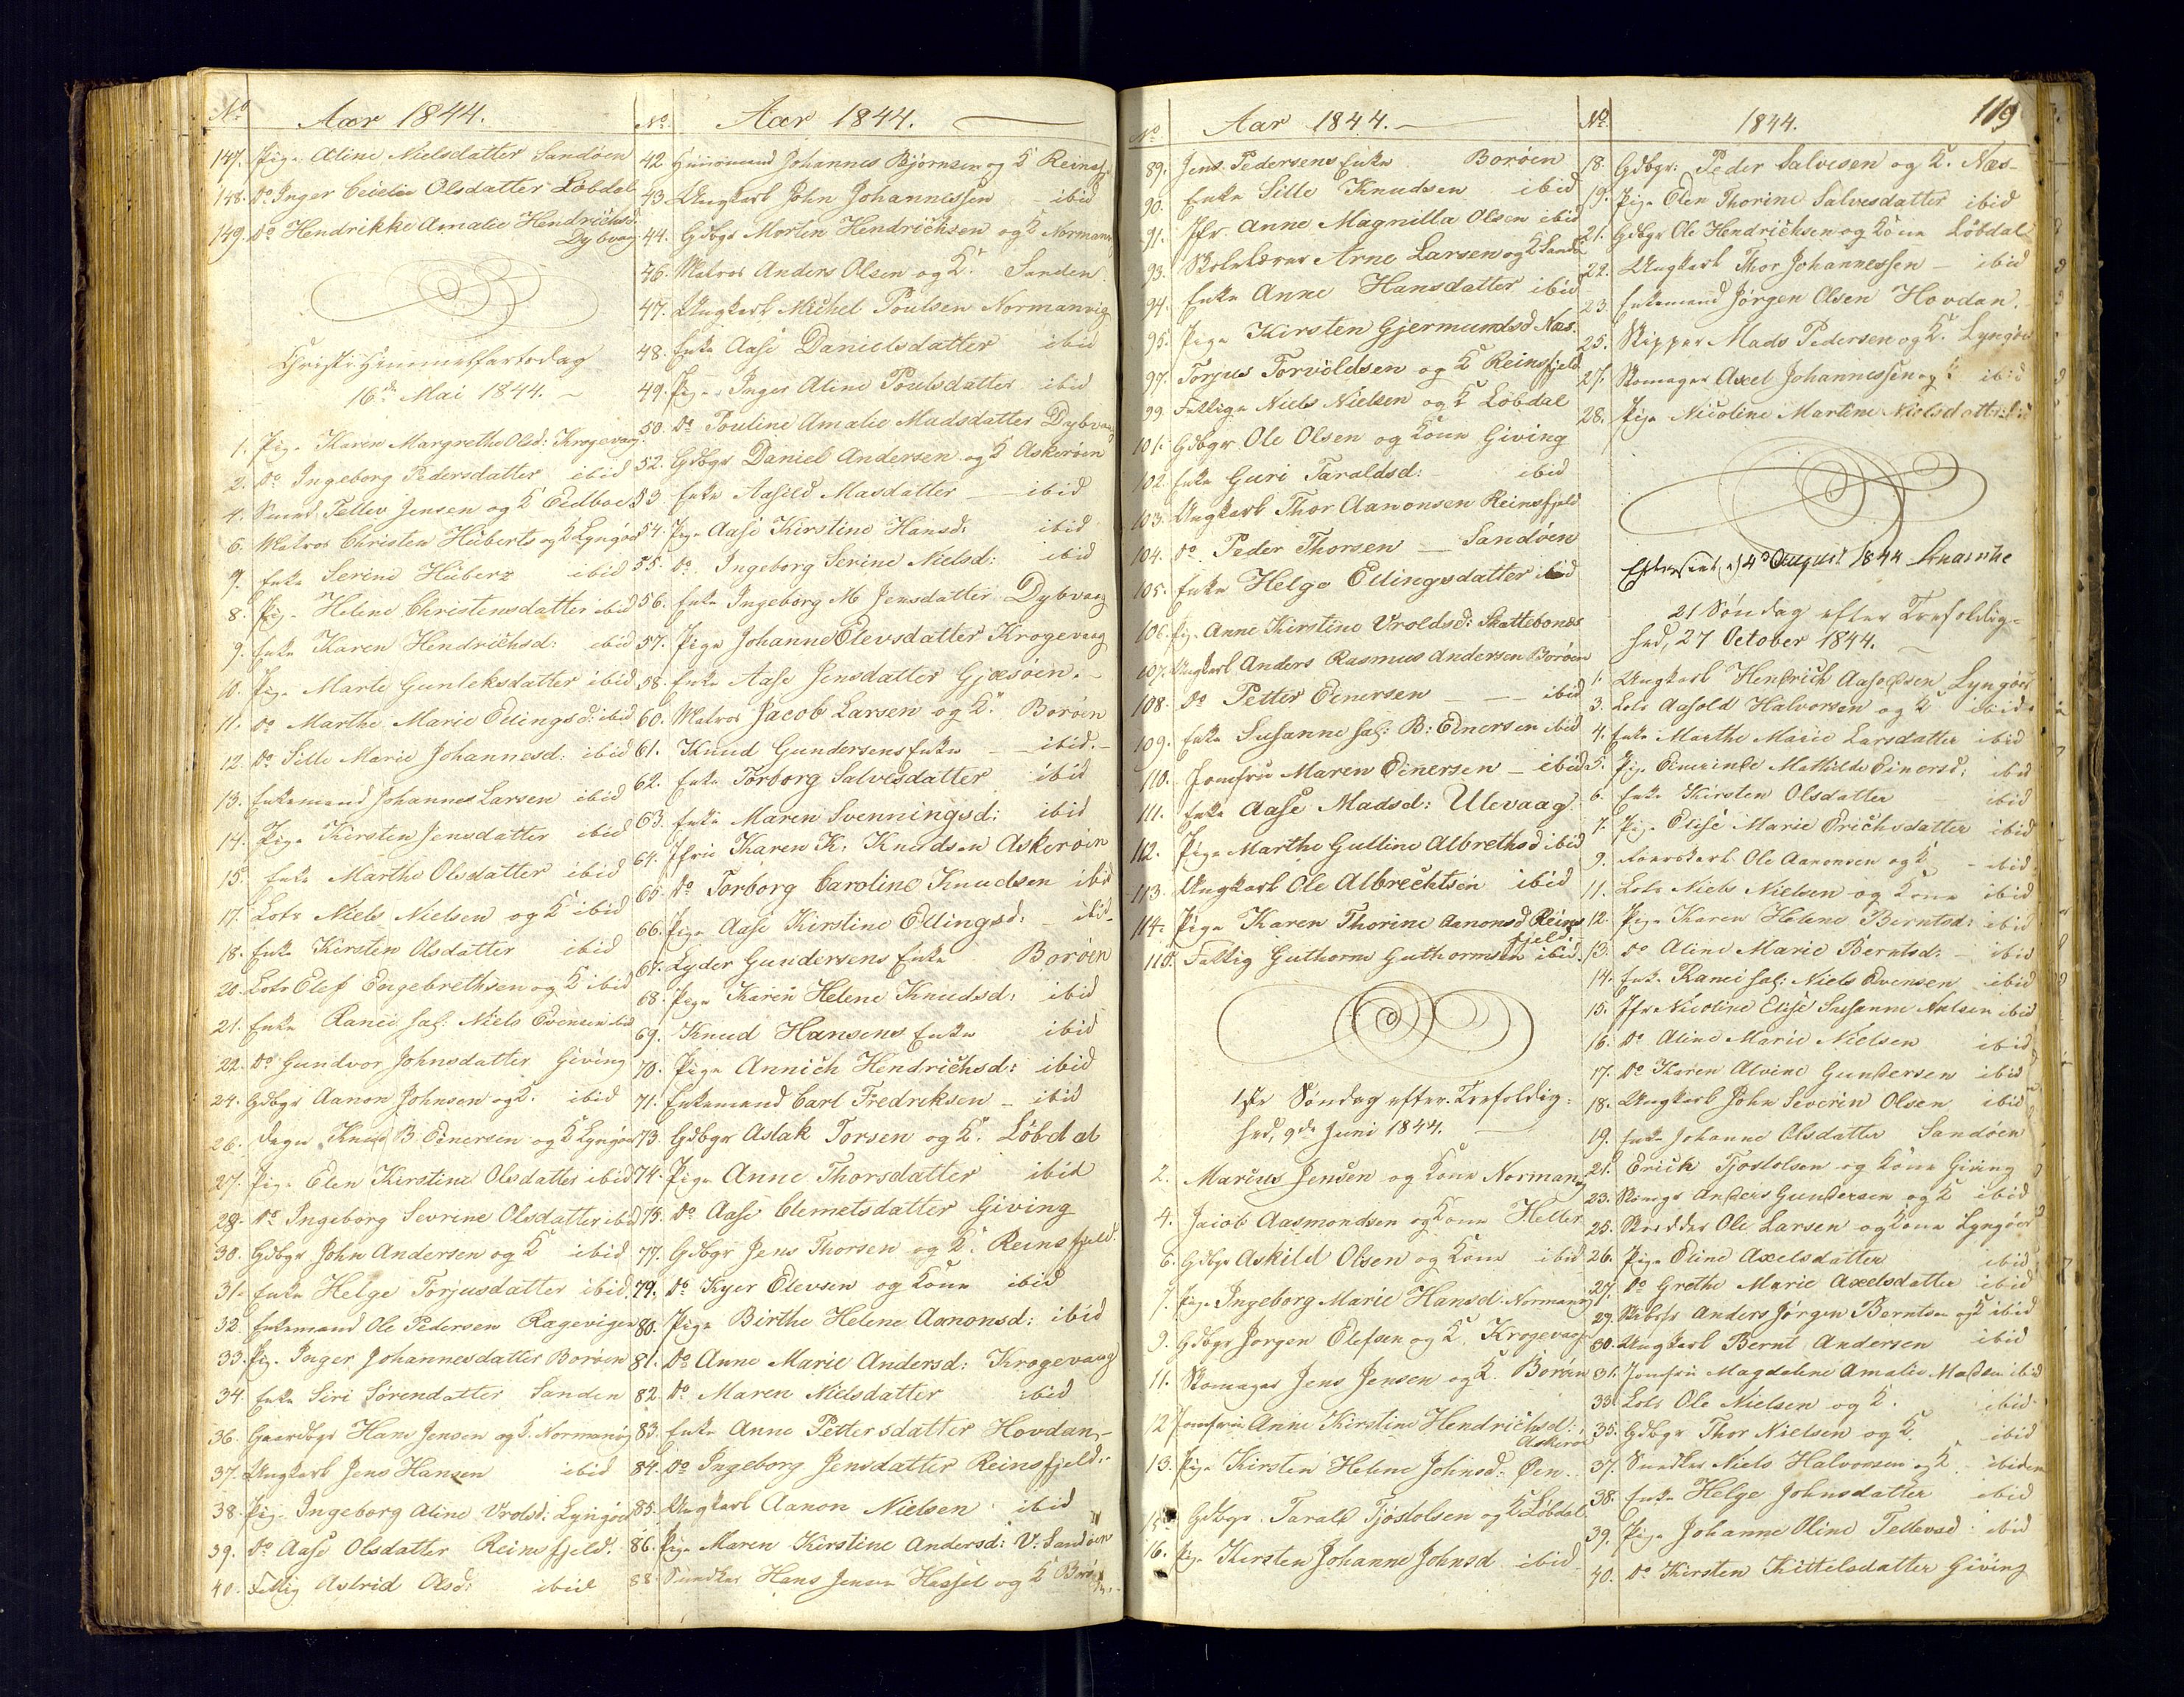 No
Aar 1844.
147. Pige Aline Nielsdatter Sandøen
148. do Inger Cecilie Olsdatter Løbdal
149. do Hendrikke Amalie Hendrichsd:
Dybvaag
Christi Himmelfartsdag
16de Mai 1844.
1. Pige Karen Margrethe Olsd: Krogevaag
2. do Ingeborg Pedersdatter ibid
4. Smed Tellev Jensen og K Eidboe
6. Matros Christen Hüberts og K Lyngøer
7. Enke Serine Hüberz ibid
8. Pige Helene Christensdatter ibid
9. Enke Karen Hendrichsd: ibid
10. Pige Marte Gunleksdatter ibid
11. do Marthe Marie Ellingsd: ibid
12. do Sille Marie Johannesd: ibid
13. Enkemand Johannes Larsen ibid
14. Pige Kirsten Jensdatter ibid
15. Enke Marthe Olsdatter ibid
17. Lots Niels Nielsen og K ibid
18. Enke Kirsten Olsdatter ibid
20. Lots Elef Engebrethsen og K ibid
21. Enke Ranei sal: Niels Evensen ibid
22. do Gundvor Johnsdatter Giving
24. Gdbgr Aanon Johnsen og K. ibid
26. Knud B. Einersen og K Lyngøer
27. Pige Elen Kirstine Olsdatter ibid
28. do Ingeborg Sevrine Olsdatter ibid
30. Gdbgr John Andersen og K ibid
31. Enke Helge Torjusdatter ibid
32. Enkemand Ole Pedersen Ragevigen
33. Pige Inger Johannesdatter Borøen
34. Enke Siri Sørendatter Sanden
36. Gaardbgr Hans Jensen og K. Normanvig
37. Ungkarl Jens Hansen ibid
38. Pige Ingeborg Aline Vrolsd: Lyngøer
39. do Aase Olsdatter Reinsfjeld.
40. Fattig Astrid Olsd: ibid
No.
Aar 1844.
42. Huusmand Johannes Bjørnsen og K Reinsfj.
43. Ungkarl John Johannessen ibid
44. Gdbgr Morten Hendrichsen og K Normanv
46. Matros Anders Olsen og K. Sanden
47. Ungkarl Michel Poulsen Normanvig
48. Enke Aase Danielsdatter ibid
49. Pige Inger Aline Poulsdatter ibid
50. do Pouline Amalie Madsdatter Dybvaag
52. Gdbgr Daniel Andersen og K Askerøen
53. Enke Aasild Masdatter ibid
54. Pige Aase Kirstine Hansd: ibid
55. do Ingeborg Serine Nielsd: ibid
56. Enke Ingeborg M Jensdatter Dybvaag
57. Pige Johanne Elevsdatter Krogevaag
58. Enke Aase Jensdatter Gjæsøen.
60. Matros Jacob Larsen og K. Borøen
61. Knud Gundersens Enke ibid.
62. Enke Torborg Salvesdatter ibid
63. Enke Maren Svenningsd: ibid
64. Jfru Karen K. Knudsen Askerøen
65. do Torborg Caroline Knudsen ibid
66. Pige Aase Kirstine Ellingsd: ibid
67. Lyder Gundersens Enke Borøen
68. Pige Karen Helene Knudsd: ibid
69. Knud Hansens Enke ibid
70. Pige Annich Hendrichsd: ibid
71. Enkemand Carl Fredriksen ibid
73. Gdbgr Aslak Torsen og K. Løbdal
74. Pige Anne Thorsdatter ibid
75. do Aase Clemetsdatter Giving
77. Gdbgr Jens Thorsen og K. Reinsfjeld.
79. do Kyer Elevsen og Kone ibid
80. Pige Birthe Helene Aanonsd: ibid
81. do Anne Marie Andersd: Krogevaag
82. do Maren Nielsdatter ibid
83. Enke Anne Pettersdatter Hovdan.
84. do Ingeborg Jensdatter Reinsfjeld.
85. Ungkarl Aanon Nielsen ibid
86. Pige Maren Kirstine Andersd: V: Sandøen
88. Hans Jensen Hassel og K Borøen
No.
Aar 1844.
89. Jens Pedersens Enke Borøen
90. Enke Sille Knudsen ibid
91. Jfr Anne Magnilla Olsen ibid
93. Skolelærer Arne Larsen og K Sandø
94. Enke Anne Hansdatter ibid
95. Pige Kirsten Gjermundsd Næs.
97. Torjus Torvoldsen og K Reinsfjeld
99. Fattige Niels Nielsen og K Løbdal
101. Gdbgr Ole Olsen og Kone Giving
102. Enke Guri Taraldsd: ibid
103. Ungkarl Thor Aanonsen Reinsfjeld
104. do Peder Thorsen Sandøen
105. Enke Helge Ellingsdatter ibid
106. Pig. Anne Kirstine Vroldsd: Skattebones
107. Ungkarl Anders Rasmus Andersen Borøen
108. do Petter Einersen ibid
109. Enke Susanne sal: B: Einersen ibid
110. Jomfru Maren Einersen ibid
111. Enke Aase Madsd: Ulevaag
112. Pige Marthe Gulline Albrethsd ibid
113. Ungkarl Ole Albrechtsen ibid
114. Pige Karen Thorine Aanonsd Reins
fjeld
115. Fattig Guthorm Guthormsen ibid
1ste Søndag efter Trefoldig-
hed, 9de Juni 1844.
2. Marius Jensen og Kone Normanv
4. Jacob Aasmondsen og Kone Helle
6. Gdbgr Askild Olsen og Kone ibid
7. Pige Ingeborg Marie Hansd: Normanvig
9. Gdbgr Jørgen Elefsen og K. Krogevaag
11. Skomager Jens Jensen og K. Borøen
12. Jomfru Anne Kirstine Hendrichsd:
Askerøe
13. Pige Kirsten Helene Johnsd: Øen.
15. Gdbgr. Tarald Tjøstolsen og K Løbdal
16. Pige Kirsten Johanne Johnsd ibid
No.
1844.
119
18. Gdbgr: Peder Salvesen og K. Næs
19. Pige Elen Thorine Salvesdatter ibid
21. Gdbgr Ole Hendrichsen og Kone Løbdal
22. Ungkarl Thor Johannessen ibid
23. Enkemand Jørgen Olsen Hovdan.
25. Skipper Mads Pedersen og K. Lyngøer
27. Skomager Axel Johannessen og K ibid
28. Pige Nicoline Martine Nielsdatter ibid
Efterseet d 4de August 1844
21 Søndag efter Trefoldig-
hed, 27 October 1844.
1. Ungkarl Hendrich Aasoldsen Lyngøer
3. Lots Aasold Halvorsen og K ibid
4. Enke Marthe Marie Larsdatter ibid
5. Pige Einerinde Mathilde Einersd: ibid
6. Enke Kirsten Olsdatter ibid
7. Pige Elise Marie Erichsdatter ibid
9. Ole Aanonsen og K ibid
11. Lots Niels Nielsen og Kone ibid
12. Pige Karen Helene Berntsd: ibid
13. do Aline Marie Berntsd: ibid
14. Enke Ranei sal: Niels Evensen ibid
15. Jfr Nicoline Elise Susanne Nielsen ibid
16. do Aline Marie Nielsen ibid
17. do Karen Alvine Gundersen ibid
18. Ungkarl John Severin Olsen ibid
19. Enke Johanne Olsdatter Sandøen
21. Erich Tjøstolsen og Kone Giving
23. Skomgr Anders Gundersen og K ibid
25. Skredder Ole Larsen og Kone Lyngøer
26. Pige Eline Axelsdatter ibid
27. do Grethe Marie Axelsdatter ibid
29. Skibsfr Anders Jørgen Berntsen og K ibid
30. Ungkarl Bernt Andersen ibid
31. Jomfru Magdelene Amalie Madsen ibid
33. Lots Ole Nielsen og K. ibid
35. Gdbgr Thor Nielsen og K. ibid
37. Snedker Niels Halvorsen og K ibidem
38. Enke Helge Johnsdatter ibid
39. Pige Johanne Oline Tellevsd: ibid
40. do Kirsten Kittelsdatter Giving